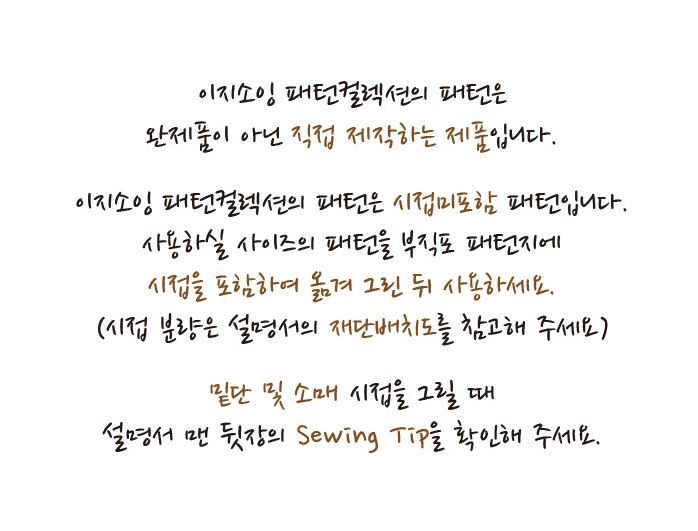 이지소잉 패턴컬렉션의 패턴은
완제품이 아닌 직접 제작하는 제품입니다.
이지소잉 패턴컬렉션의 패턴은 시접미포함 패턴입니다.
사용하실 사이즈의 패턴을 부직포 패턴지에
시접을 포함하여 옮겨 그린 뒤 사용하세요.
(시접 분량은 설명서의 재단배치도를 참고해 주세요)
밑단 및 소매 시접을 그릴 때
설명서 맨 뒷장의 Sewing Tip을 확인해 주세요.